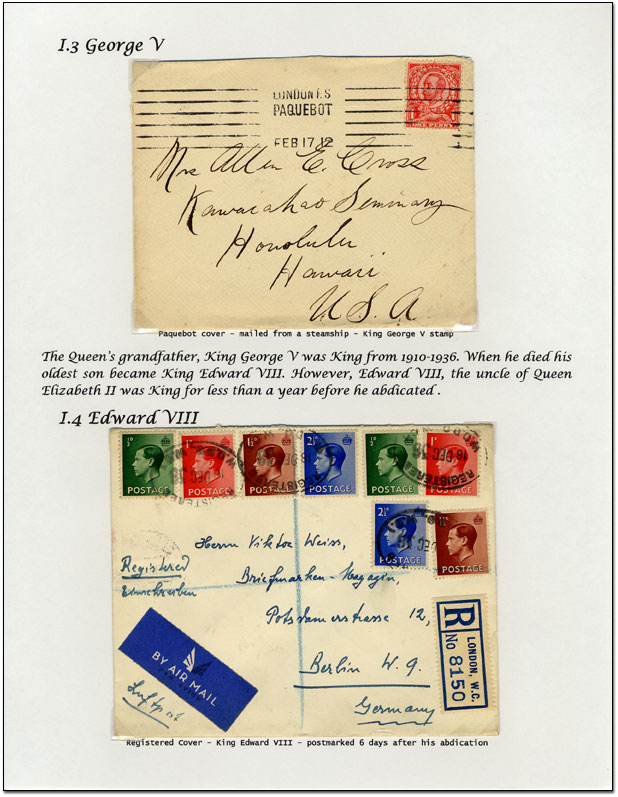 I.3 George V
LONDON F.S
PAQUEBOT
FEB 17 12
ONE PENNY
Mrs Allen E. Cross
Kawaiahao Seminary
Honolulu
Hawaii
U.S.A
Paquebot cover - mailed from a steamship - King George V stamp
The Queen's grandfather, King George V was King from 1910-1936. When he died his
oldest son became King Edward VIII. However, Edward VIII, the uncle of Queen
Elizabeth II was King for less than a year before he abdicated .
I.4 Edward VIII
½D 1D 1½D 2½D ½D 1D
POSTAGE POSTAGE POSTAGE POSTAGE POSTAGE POSTAGE
REGISTERED
16 DEC 36
2½D 1½D
POSTAGE POSTAGE
Herrn Viktor Weiss,
Registered
Einschreiben
Briefmarken-Magazin,
Potsdamerstrasse 12,
Berlin W. 9.
Germany
BY AIR MAIL
Luftpost
R
LONDON, W.C.
No 8150
Registered Cover - King Edward VIII - postmarked 6 days after his abdication